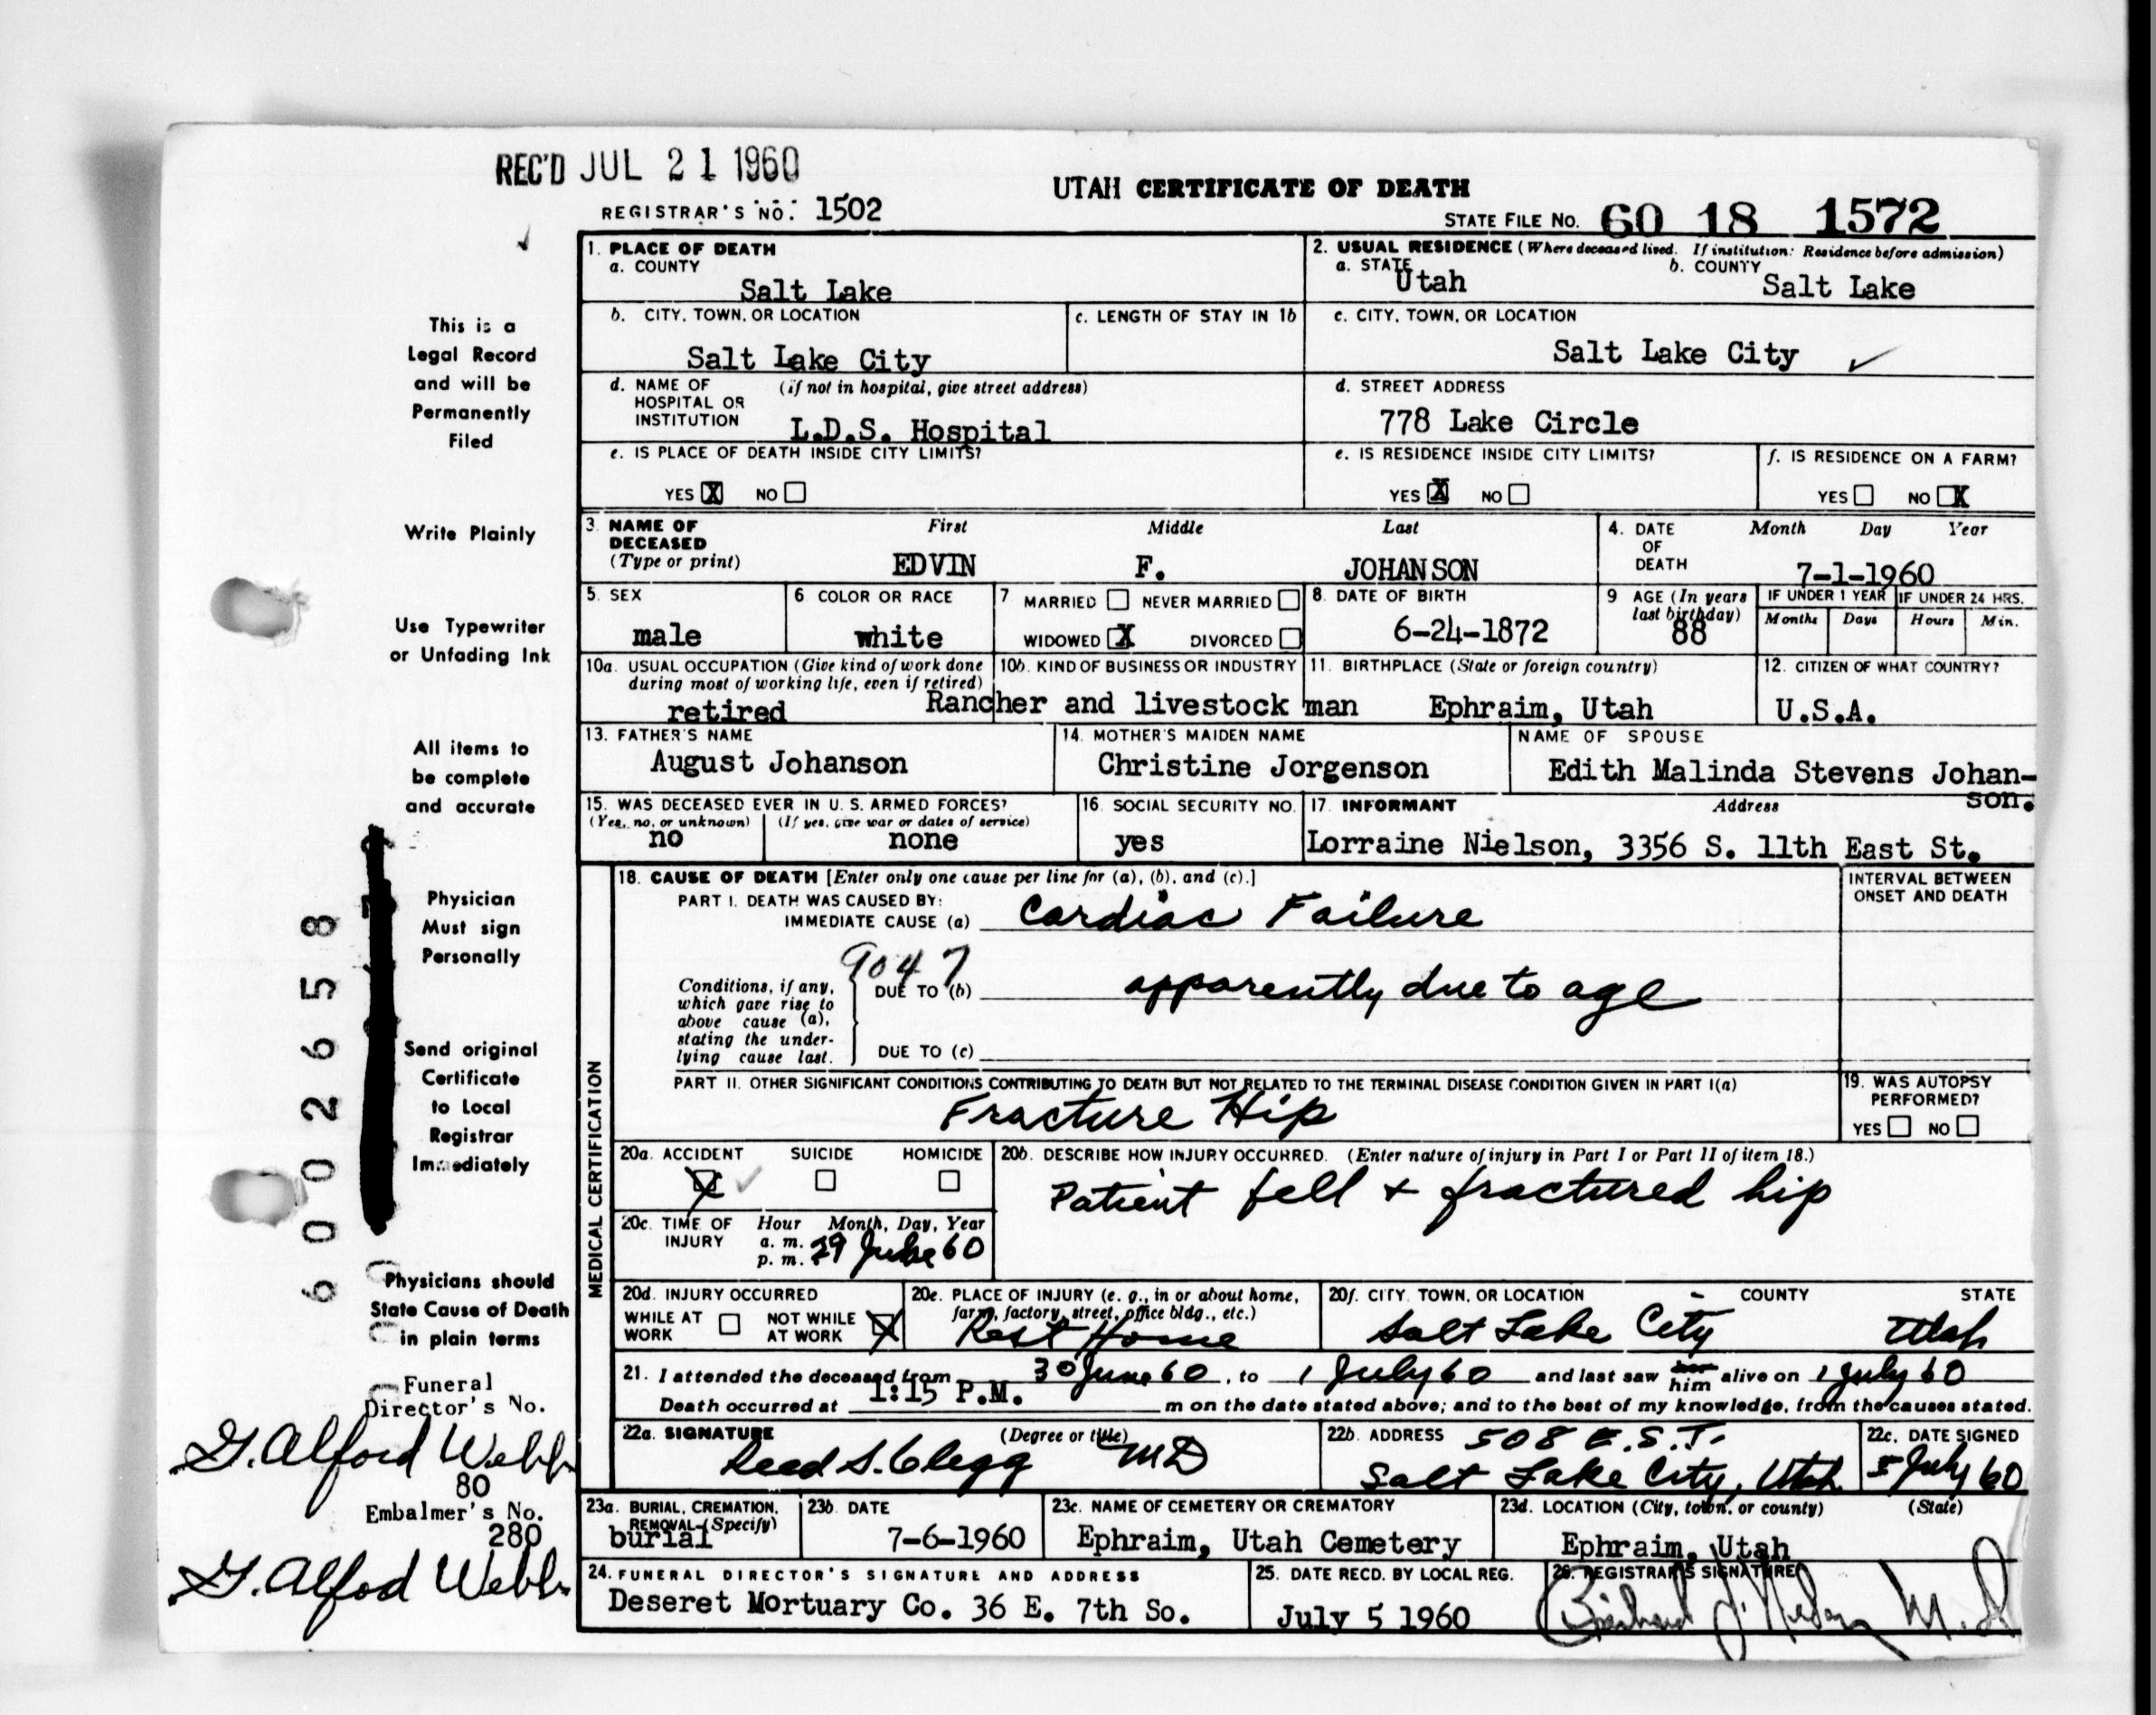 REC'D JUL 21 1960
UTAH CERTIFICATE OF DEATH
REGISTRAR'S NO. 1502
STATE FILE NO. 60 18 1572
1. PLACE OF DEATH
a. COUNTY
Salt Lake
2. USUAL RESIDENCE (Where deceased lived. If institution: Residence before admission)
a. STATE Utah b. COUNTY Salt Lake
b. CITY, TOWN, OR LOCATION
Salt Lake City
c. LENGTH OF STAY IN 1b
c. CITY, TOWN, OR LOCATION
Salt Lake City ✓
d. NAME OF HOSPITAL OR INSTITUTION (if not in hospital, give street address)
L.D.S. Hospital
d. STREET ADDRESS
778 Lake Circle
e. IS PLACE OF DEATH INSIDE CITY LIMITS?
YES X NO
e. IS RESIDENCE INSIDE CITY LIMITS?
YES X NO
f. IS RESIDENCE ON A FARM?
YES NO X
3. NAME OF DECEASED (Type or print)
First Middle Last
EDVIN F. JOHANSON
4. DATE OF DEATH Month Day Year
7-1-1960
5. SEX
male
6. COLOR OR RACE
white
7 MARRIED NEVER MARRIED
WIDOWED X DIVORCED
8. DATE OF BIRTH
6-24-1872
9 AGE (In years last birthday)
88
IF UNDER 1 YEAR
Months Days
IF UNDER 24 HRS.
Hours Min.
10a. USUAL OCCUPATION (Give kind of work done during most of working life, even if retired)
retired
10b. KIND OF BUSINESS OR INDUSTRY
Rancher and livestock man
11. BIRTHPLACE (State or foreign country)
Ephraim, Utah
12. CITIZEN OF WHAT COUNTRY?
U.S.A.
13. FATHER'S NAME
August Johanson
14. MOTHER'S MAIDEN NAME
Christine Jorgenson
NAME OF SPOUSE
Edith Malinda Stevens Johan-
son.
15. WAS DECEASED EVER IN U. S. ARMED FORCES?
(Yes, no, or unknown) (If yes, give war or dates of service)
no none
16. SOCIAL SECURITY NO.
yes
17. INFORMANT Address
Lorraine Nielson, 3356 S. 11th East St.
MEDICAL CERTIFICATION
18. CAUSE OF DEATH [Enter only one cause per line for (a), (b), and (c).]
PART I. DEATH WAS CAUSED BY:
IMMEDIATE CAUSE (a) Cardiac Failure
INTERVAL BETWEEN ONSET AND DEATH
9047
Conditions, if any, which gave rise to above cause (a), stating the underlying cause last.
DUE TO (b) apparently due to age
DUE TO (c)
PART II. OTHER SIGNIFICANT CONDITIONS CONTRIBUTING TO DEATH BUT NOT RELATED TO THE TERMINAL DISEASE CONDITION GIVEN IN PART I(a)
Fracture Hip
19. WAS AUTOPSY PERFORMED?
YES NO
20a. ACCIDENT SUICIDE HOMICIDE
X ✓
20b. DESCRIBE HOW INJURY OCCURRED. (Enter nature of injury in Part I or Part II of item 18.)
Patient fell + fractured hip
20c. TIME OF INJURY Hour Month, Day, Year
a. m.
p. m. 29 June 60
20d. INJURY OCCURRED
WHILE AT WORK NOT WHILE AT WORK X
20e. PLACE OF INJURY (e. g., in or about home, farm, factory, street, office bldg., etc.)
Rest Home
20f. CITY, TOWN, OR LOCATION COUNTY STATE
Salt Lake City Utah
21. I attended the deceased from 30 June 60, to 1 July 60 and last saw her him alive on 1 July 60
Death occurred at 1:15 P.M. m on the date stated above; and to the best of my knowledge, from the causes stated.
22a. SIGNATURE (Degree or title)
Reed S. Clegg MD
22b. ADDRESS 508 E.S.T.
Salt Lake City, Utah
22c. DATE SIGNED
5 July 60
23a. BURIAL, CREMATION, REMOVAL (Specify)
burial
23b. DATE
7-6-1960
23c. NAME OF CEMETERY OR CREMATORY
Ephraim, Utah Cemetery
23d. LOCATION (City, town, or county) (State)
Ephraim, Utah
24. FUNERAL DIRECTOR'S SIGNATURE AND ADDRESS
Deseret Mortuary Co. 36 E. 7th So.
25. DATE RECD. BY LOCAL REG.
July 5 1960
26. REGISTRAR'S SIGNATURE
M.D
This is a
Legal Record
and will be
Permanently
Filed
Write Plainly
Use Typewriter
or Unfading Ink
All items to
be complete
and accurate
Physician
Must sign
Personally
Send original
Certificate
to Local
Registrar
Immediately
Physicians should
State Cause of Death
in plain terms
Funeral
Director's No.
G. Alford Webb
80
Embalmer's No.
280
G. Alfod Webb
6002658